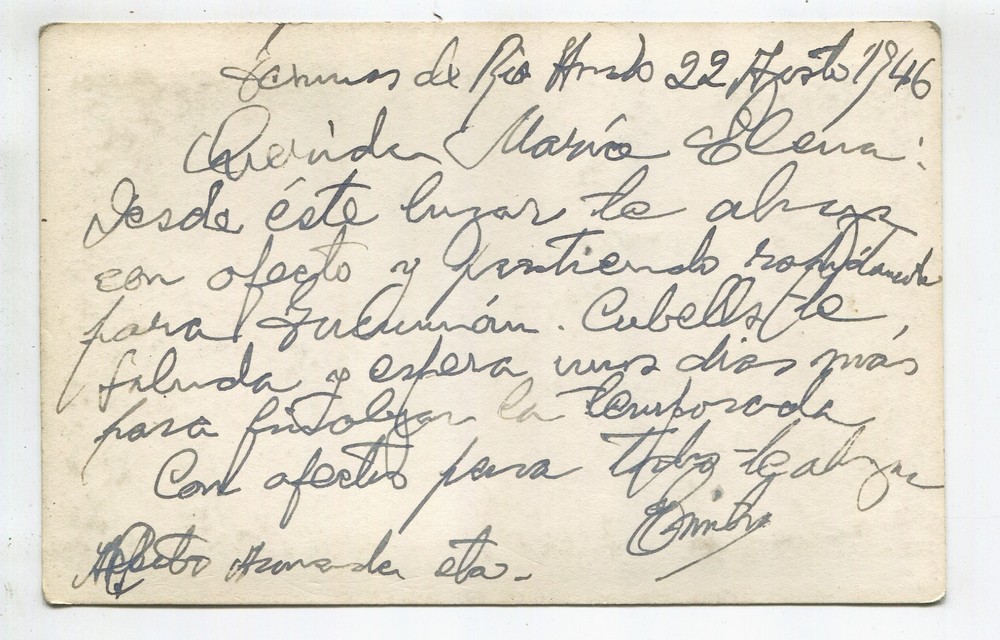 Termas de Río Hondo 22 Agosto 1946
Querida María Elena:
Desde éste lugar te abraza
con afecto y partiendo rapidamente
para Tucumán. Cubells te
saluda y espera unos dias más,
para finalizar la temporada
Con afectos para todos te abraza
Alberto Armanda eta.